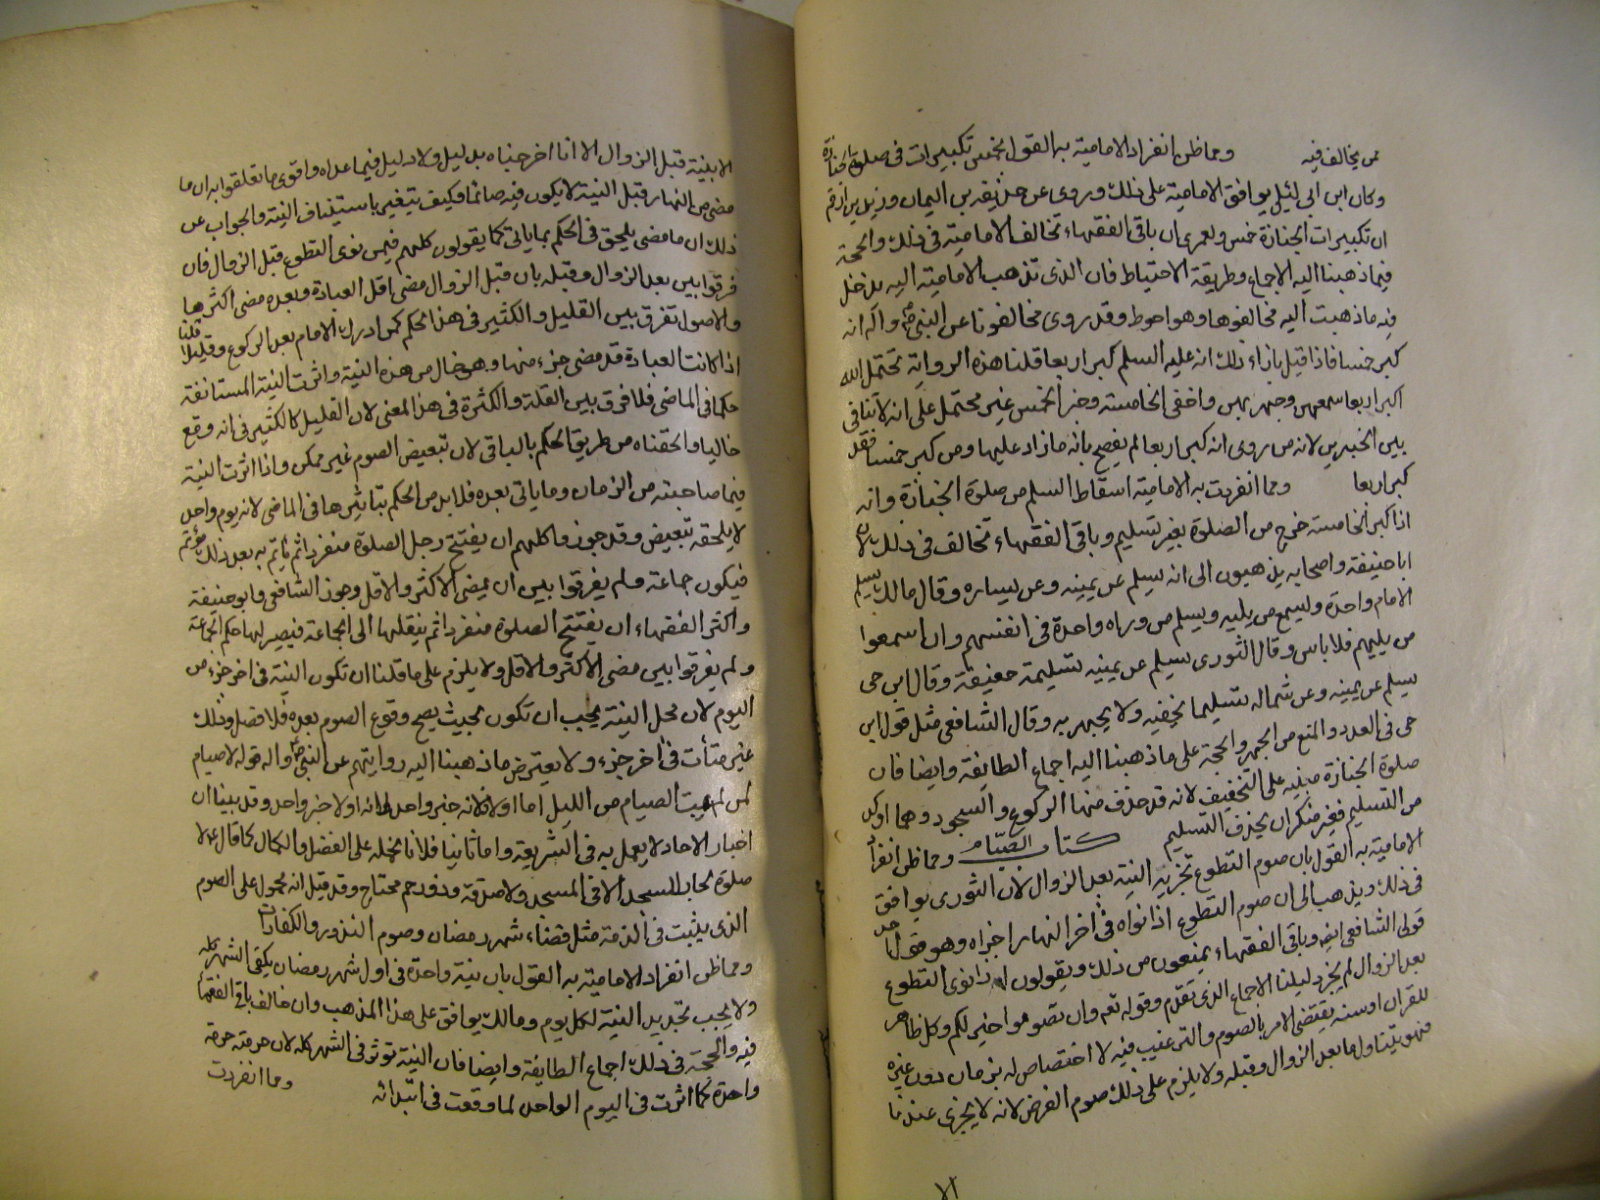 ممن يخالف فيه ومما ظن انفراد الامامية به القول بخمس تكبيرات في صلوة الجنازة
وكان ابن ابي ليلى يوافق الامامية على ذلك وروى عن حذيفة بن اليمان وزيد بن ارقم
ان تكبيرات الجنازة خمس ولعمري ان باقي الفقهاء تخالف الامامية في ذلك والحجة
فيما ذهبنا اليه الاجماع وطريقة الاحتياط فان الذى تذهب الامامية اليه يدخل
فيه ما ذهبت اليه مخالفوها وهو احوط وقد روى مخالفونا عن النبي ص واله انه
كبر خمسا فاذا قيل بازاء ذلك انه عليه السلم كبر اربعا قلنا هذه الرواية تحتمل الله
اكبر اربعا سمعهن وجهر بهن واخفى الخامسة وخبر الخمس غير محتمل على انه لا تنافى
بين الخبرين لانه من روى انه كبر اربعا لم يفصح بانه ما زاد عليها ومن كبر خمسا فقد
كبر اربعا ومما انفردت به الامامية اسقاط السلم من صلوة الجنازة وانه
اذا كبر الخامسة خرج من الصلوة بغير تسليم وباقي الفقهاء تخالف في ذلك لان
ابا حنيفة واصحابه يذهبون الى انه يسلم عن يمينه وعن يساره وقال مالك يسلم
الامام واحدة ويسمع من يليه ويسلم من وراه واحدة في انفسهم وان اسمعوا
من يليهم فلا باس وقال الثوري يسلم عن يمينه تسليمة خفيفة وقال ابن حي
يسلم عن يمينه وعن شماله تسليما يخفيه ولا يجهر به وقال الشافعي مثل قول ابن
حي في العدد والمنع من الجهر والحجة على ما ذهبنا اليه اجماع الطايفة وايضا فان
صلوة الجنازة مبنية على التخفيف لانه قد حذف منها الركوع والسجود وهما اوكد
من التسليم فغير منكر ان يحذف التسليم كتاب الصيام ومما ظن انفراد
الامامية به القول بان صوم التطوع تجزيه النية بعد الزوال لان الثورى يوافق
في ذلك ويذهب الى ان صوم التطوع اذا نواه في اخر النهار اجزاه وهو احد
قولى الشافعي ايضا وباقي الفقهاء يمنعون من ذلك ويقولون اذا نوى التطوع
بعد الزوال لم يجز دليلنا الاجماع الذى تقدم وقوله تعه وان تصوموا خير لكم وكل ظاهر
للقران او سنة يقتضى الامر بالصوم والترغيب فيه لا اختصاص له بزمان دون غيره
فهو يتناول ما بعد الزوال وقبله ولا يلزم على ذلك صوم الفرض لانه لا يجزى عندنا
الا بنية قبل الزوال الا انا اخرجناه بدليل ولا دليل فيما عداه واقوى ما تعلقوا به ان ما
مضى من النهار قبل النية لا يكون فيه صائما فكيف يتغير باستيناف النية والجواب عن
ذلك ان ما مضى يلحق في الحكم بما ياتي كما يقولون كلهم فيمن نوى التطوع قبل الزوال فان
فرقوا بين بعد الزوال وقبله بان قبل الزوال مضى اقل العبادة وبعده مضى اكثرها
والاصول تفرق بين القليل والكثير في هذا الحكم كمن ادرك الامام بعد الركوع وقبله قلنا
اذا كانت العبادة قد مضى جزء منها وهو خال من هذه النية واثرت النية المستانفة
حكما في الماضى فلا فرق بين القلة والكثرة في هذا المعنى لان القليل كالكثير في انه وقع
خاليا والحقناه من طريق الحكم بالباقي لان تبعيض الصوم غير ممكن واذا اثرت النية
فيما صاحبته من الزمان وما ياتي بعده فلا بد من الحكم بتاثيرها في الماضى لانه يوم واحد
لا يلحقه تبعيض وقد جوزوا كلهم ان يفتتح رجل الصلوة منفردا ثم ياتم به بعد ذلك مؤتم
فيكون جماعة ولم يفرقوا بين ان يمضى الاكثر والاقل وجوز الشافعي وابو حنيفة
واكثر الفقهاء ان يفتتح الصلوة منفردا ثم ينقلها الى الجماعة فيصير لها حكم الجماعة
ولم يفرقوا بين مضى الاكثر والاقل ولا يلزم على ما قلنا ان تكون النية في اخر جزء من
اليوم لان محل النية يجب ان تكون بحيث يصح وقوع الصوم بعده بلا فصل وذلك
غير متأت في اخر جزء ولا يعترض ما ذهبنا اليه روايتهم عن النبي ص واله قوله لا صيام
لمن لم يبيت الصيام من الليل اما اولا فلانه خبر واحد وقد بينا ان
اخبار الاحاد لا يعمل به في الشريعة واما ثانيا فلانا نحمله على الفضل والكمال كما قال لا
صلوة لجار المسجد الا في المسجد ولا صدقة وذو رحم محتاج وقد قيل انه محمول على الصوم
الذى يثبت في الذمة مثل قضاء شهر رمضان وصوم النذور والكفارات
ومما ظن انفراد الامامية به القول بان نية واحدة في اول شهر رمضان يكفى الشهر كله
ولا يجب تجديد النية لكل يوم ومالك يوافق على هذا المذهب وان خالف باقي الفقهاء
فيه والحجة في ذلك اجماع الطايفة وايضا فان النية توثر في الشهر كله لان حرمته حرمة
واحدة كما اثرت في اليوم الواحد لما وقعت في ابتدائه ومما انفردت